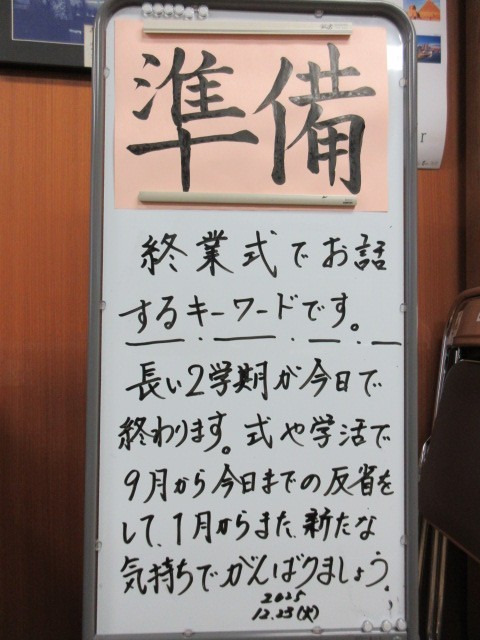 準備
終業式でお話
するキーワードです。
長い2学期が今日で
終わります。式や学活で
9月から今日までの反省を
して、1月からまた、新たな
気持ちでがんばりましょう。
2025
12.23(火)